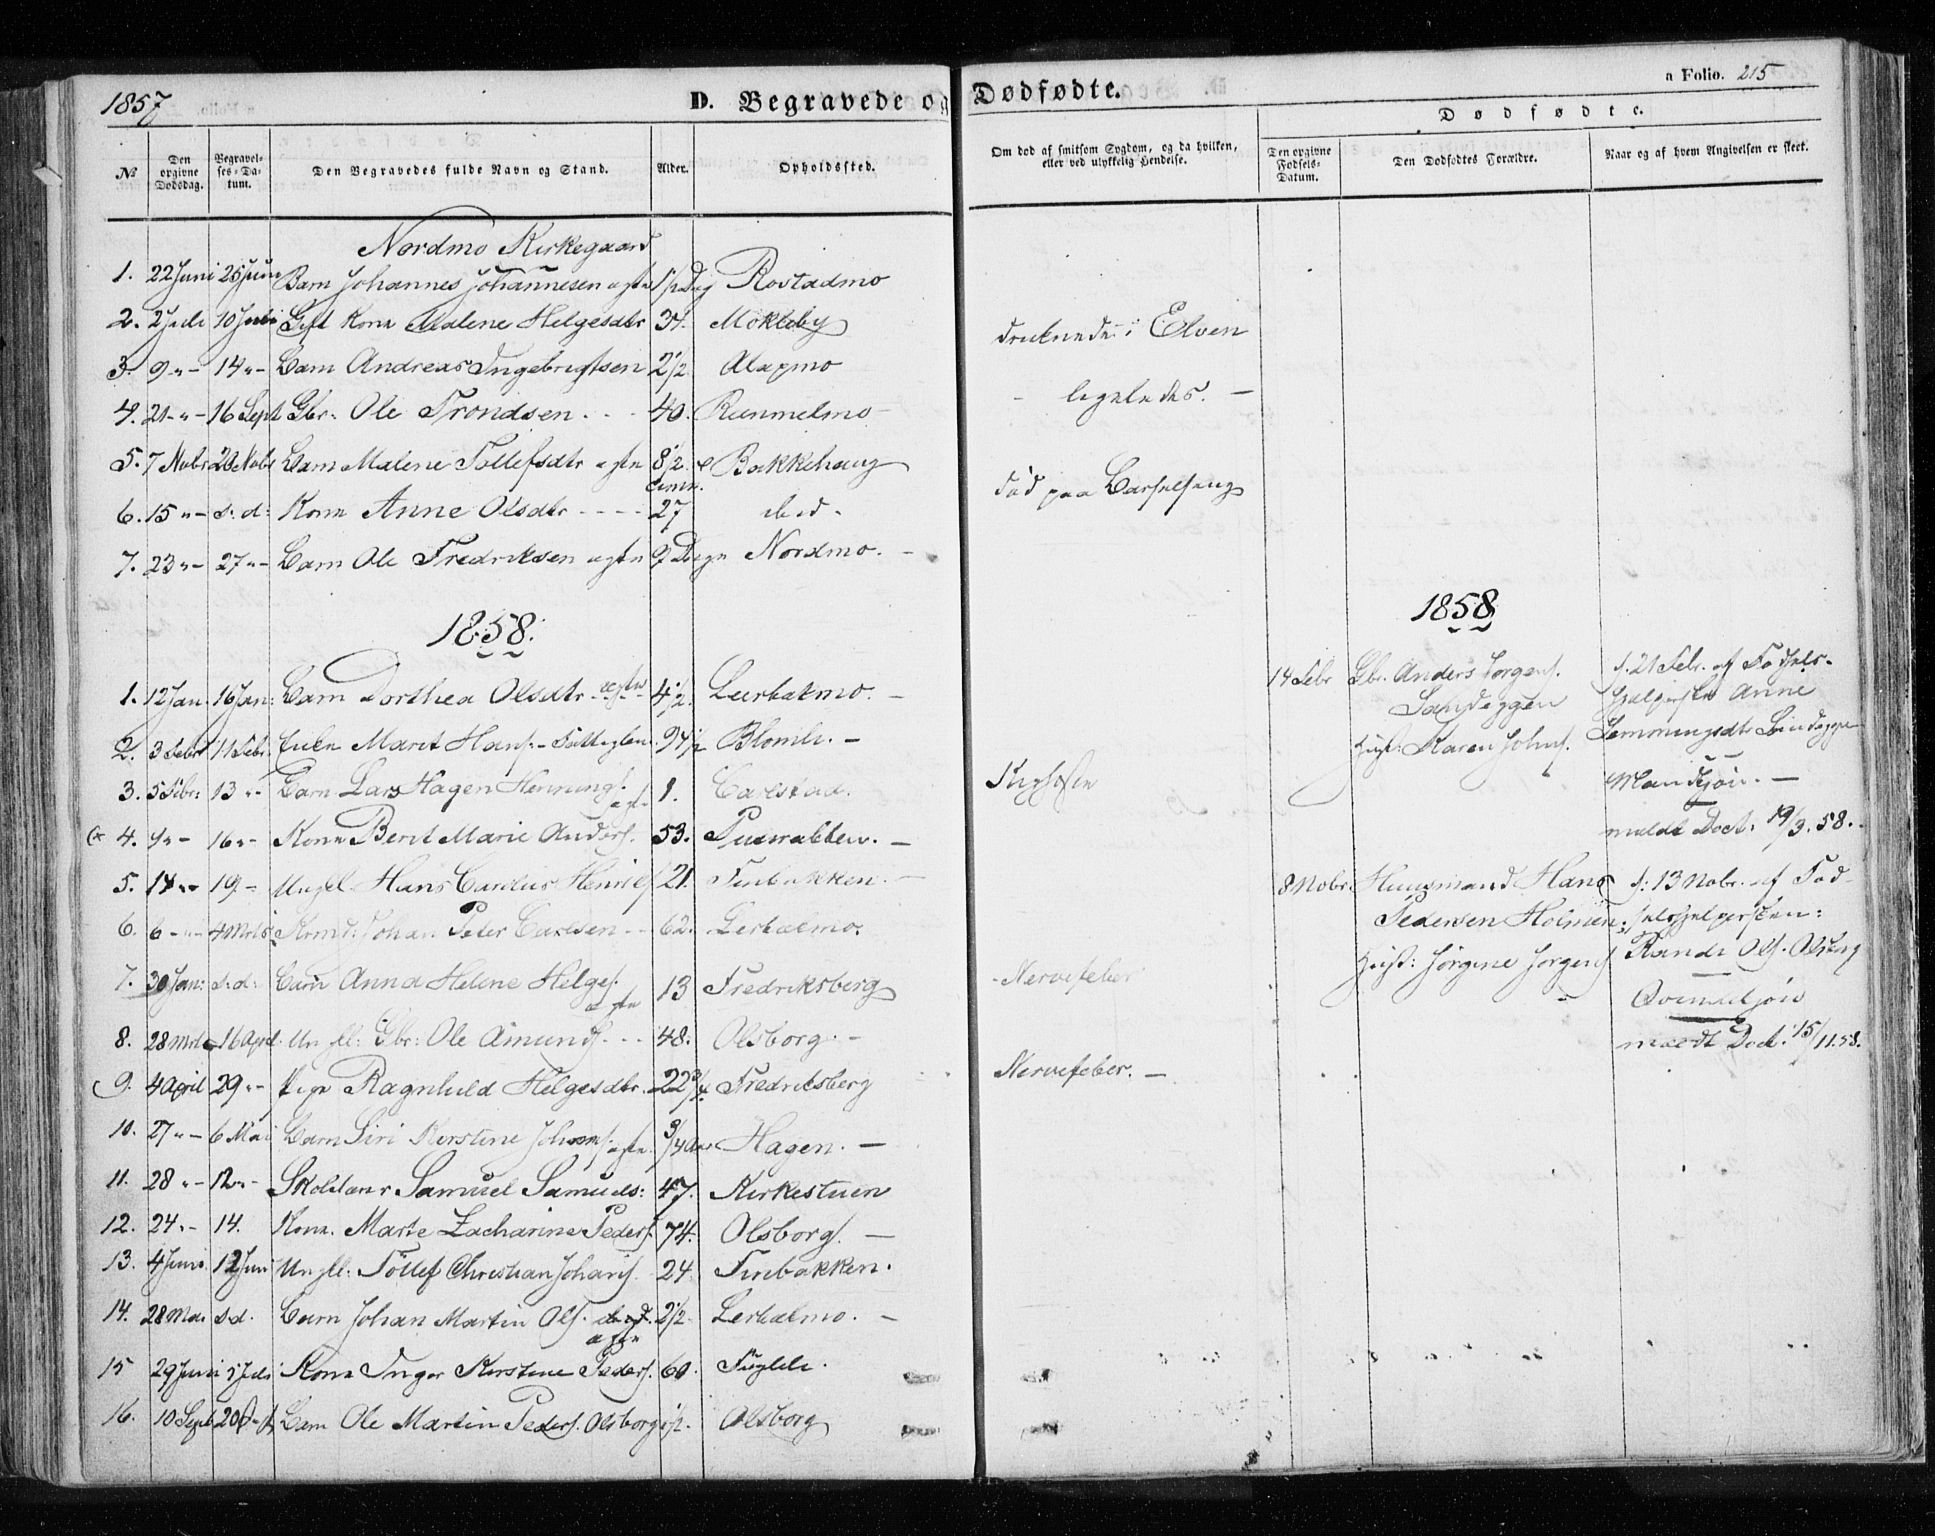 1857
D. Begravede og Dødfødte.
a Folio. 215
№
Den opgivne Dødsdag.
Begravelses-Datum.
Den Begravedes fulde Navn og Stand.
Alder.
Opholdssted.
Om død af smitsom Sygdom, og da hvilken, eller ved ulykkelig Hendelse.
Dødfødte.
Den opgivne Fødsels-Datum.
Den Dødfødtes Forældre.
Naar og af hvem Angivelsen er skeet.
Nordmo Kirkegaard
1. 22 Juni 25 Juni Barn Johannes Johannesen ægte 1/2 Dag Rostadmo
2. 2 Juli 10 Juli Gift Kone Malene Helgesdtr 34. Mokleby druknede i Elven
3. 9 "- 14 "- Barn Andreas Ingebrigtsen 2 1/2 Alapmo - ligeledes. -
4. 21 "- 16 Sept Gbr. Ole Trondsen 40. Rummelmo
5. 7 Nobr 20 Nobr Barn Malene Tollefsdtr ægte 8 1/2 Bakkehaug
6. 15 "- s. d: Kone Anne Olsdtr - - - - 27 ibid. død paa Barselseng
7. 23 "- 27 "- Barn Ole Fredriksen ægte 9 Dage Nordmo. -
1858.
1. 12 Jan. 16 Jan: Barn Dorthea Olsdtr ægte 4 1/2 Leerbakmo. -
2. 3 Febr 11 Febr. Enke Marit Hans. - Fattiglem. 94 1/2 Blomli. -
3. 5 Febr: 13 "- Barn Lars Hagen Henrings. ægte 1. Carlstad.
4. 9 "- 16 "- Kone Berit Marie Anders. 53. -
5. 14 "- 19 "- Ungkl. Hans Carolus Henriks 21. Finbakken. -
6. 6 - "- 4 Mrts Johan Peter Carlsen - 62. Lerbakmo.
7. 30 Jan: s. d: Barn Anna Helene Helges. ægte 13 Fredriksberg - Nervefeber
8. 28 Mrts 16 April Ungkl: Gbr: Ole Amunds. - - 48. Olsborg. -
9. 4 April 29 "- Pige Ragnhild Helgesdtr. 22 3/4 Fredriksberg Nervefeber. -
10. 27 "- 6 Mai Barn Siri Kerstine Johans. ægte. 3/4 Aar Hagen. -
11. 28 "- 12 "- Skolelærer Samuel Samuels: 47. Kirkestuen
12. 24 "- 14. Kone. Marte Zacharine Peders. 74. Olsborg. -
13. 4 Juni 12 Juni Ungkl. Tollef Christian Johans. 24. Finbakken.
14. 28 Mai s. d. Barn Johan Martin Ols. ægte 2 1/2 Lerbakmo. -
15 29 Juni Juli Kone Inger Kerstine Peders. 60. Fuglli.
16. 10 Sept Barn Ole Martin Peders. Olsborg 1/2. Olsborg
1858
14 Febr Gbr. Anders Jorgens.
Sandeggen
Hust: Karen Johns.
d. 21 Febr. af Fødsels-
hjelpersken Anne
Lemmingsdtr
Mandkjøn. -
meldt Doct. 19/3. 58.
8 Nobr. Huusmand Hans
Pedersen Holmen.
Hust: Jørgine Jørgens
d: 13 Nobr. af Fød-
selshjelpersken:
Randi Ols. Olsborg
Qvindekjøn
meldt Doct. 15/11. 58.